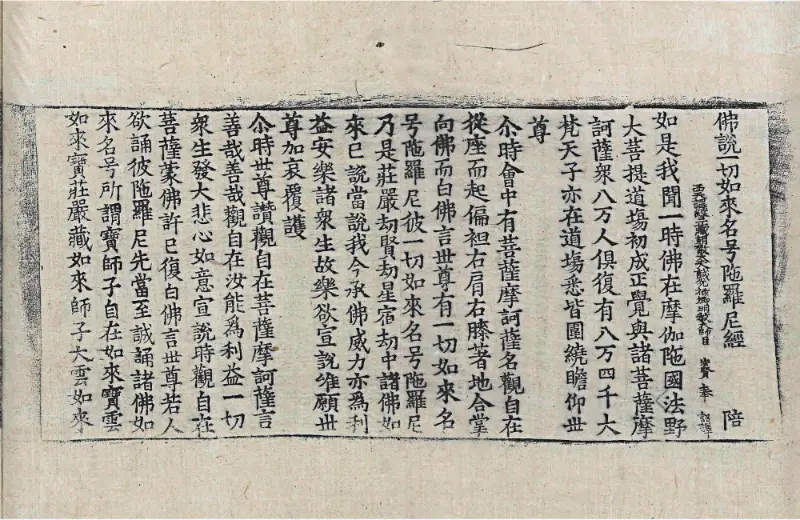 佛說一切如來名号陁羅尼經　陪
西天譯經三藏朝散大夫試光祿卿明教大師臣　奉　詔譯
如是我聞一時佛在摩伽陁國法野
大菩提道場初成正覺與諸菩薩摩
訶薩衆八万人俱復有八万四千大
梵天子亦在道場悉皆圍繞瞻仰世
尊
尒時會中有菩薩摩訶薩名觀自在
從座而起偏袒右肩右膝著地合掌
向佛而白佛言世尊有一切如來名
号陁羅尼彼一切如來名号陁羅尼
乃是莊嚴劫賢劫星宿劫中諸佛如
來已說當說我今承佛威力亦為利
益安樂諸衆生故樂欲宣說唯願世
尊加哀覆護
尒時世尊讚觀自在菩薩摩訶薩言
善哉善哉觀自在汝能為利益一切
衆生發大悲心如意宣說時觀自在
菩薩蒙佛許已復白佛言世尊若人
欲誦彼陁羅尼先當至誠誦諸佛如
來名号所謂寶師子自在如來寶雲
如來寶莊嚴藏如來師子大雲如來